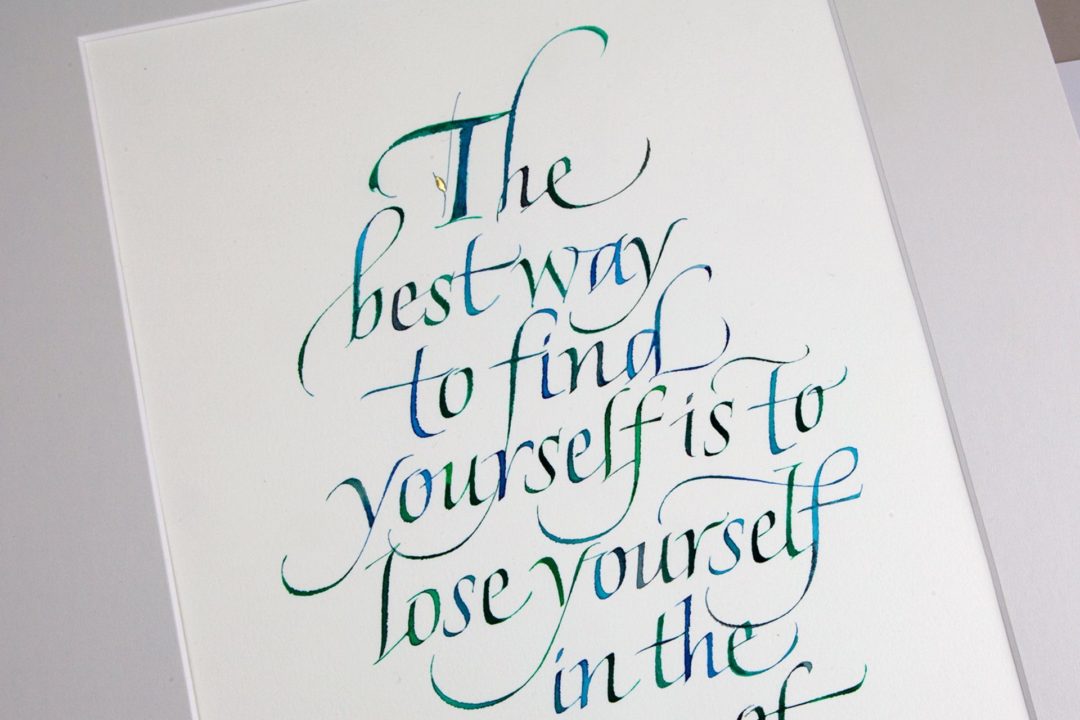 The
best way
to find
yourself is to
lose yourself
in the
of